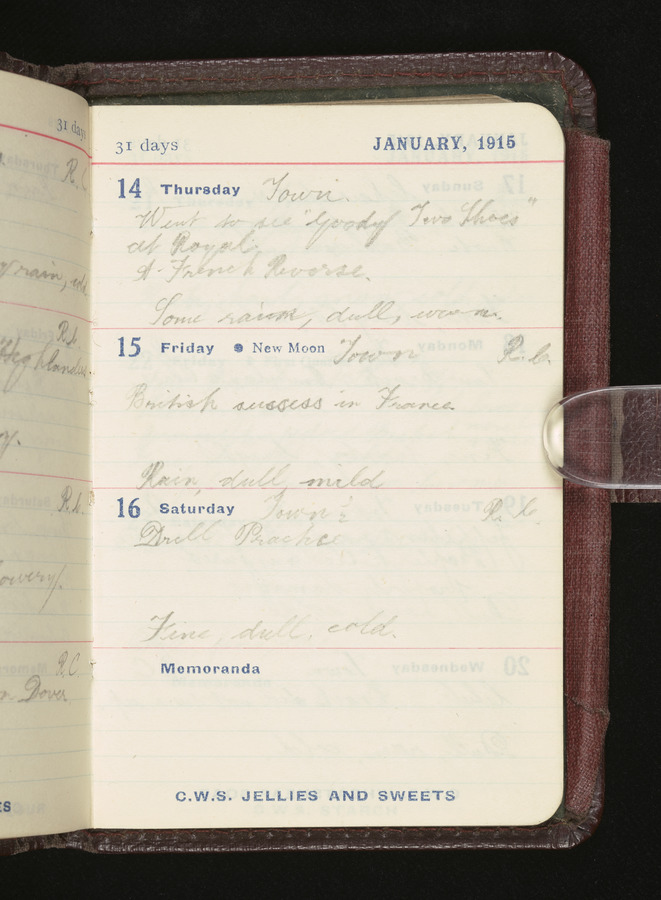 31 days
R.
rain, cold
R.b.
Highlanders
y.
R.b.
owery.
R.C.
n Dover
ES
31 days JANUARY, 1915
14 Thursday Town.
Went to see "Goody Two Shoes"
at Royal.
A French Reverse.
Some rain, dull, warm.
15 Friday New Moon Town R.b.
British success in France.
Rain, dull mild
16 Saturday Town R.b.
Drill Practice
Fine, dull, cold.
Memoranda
C.W.S. JELLIES AND SWEETS